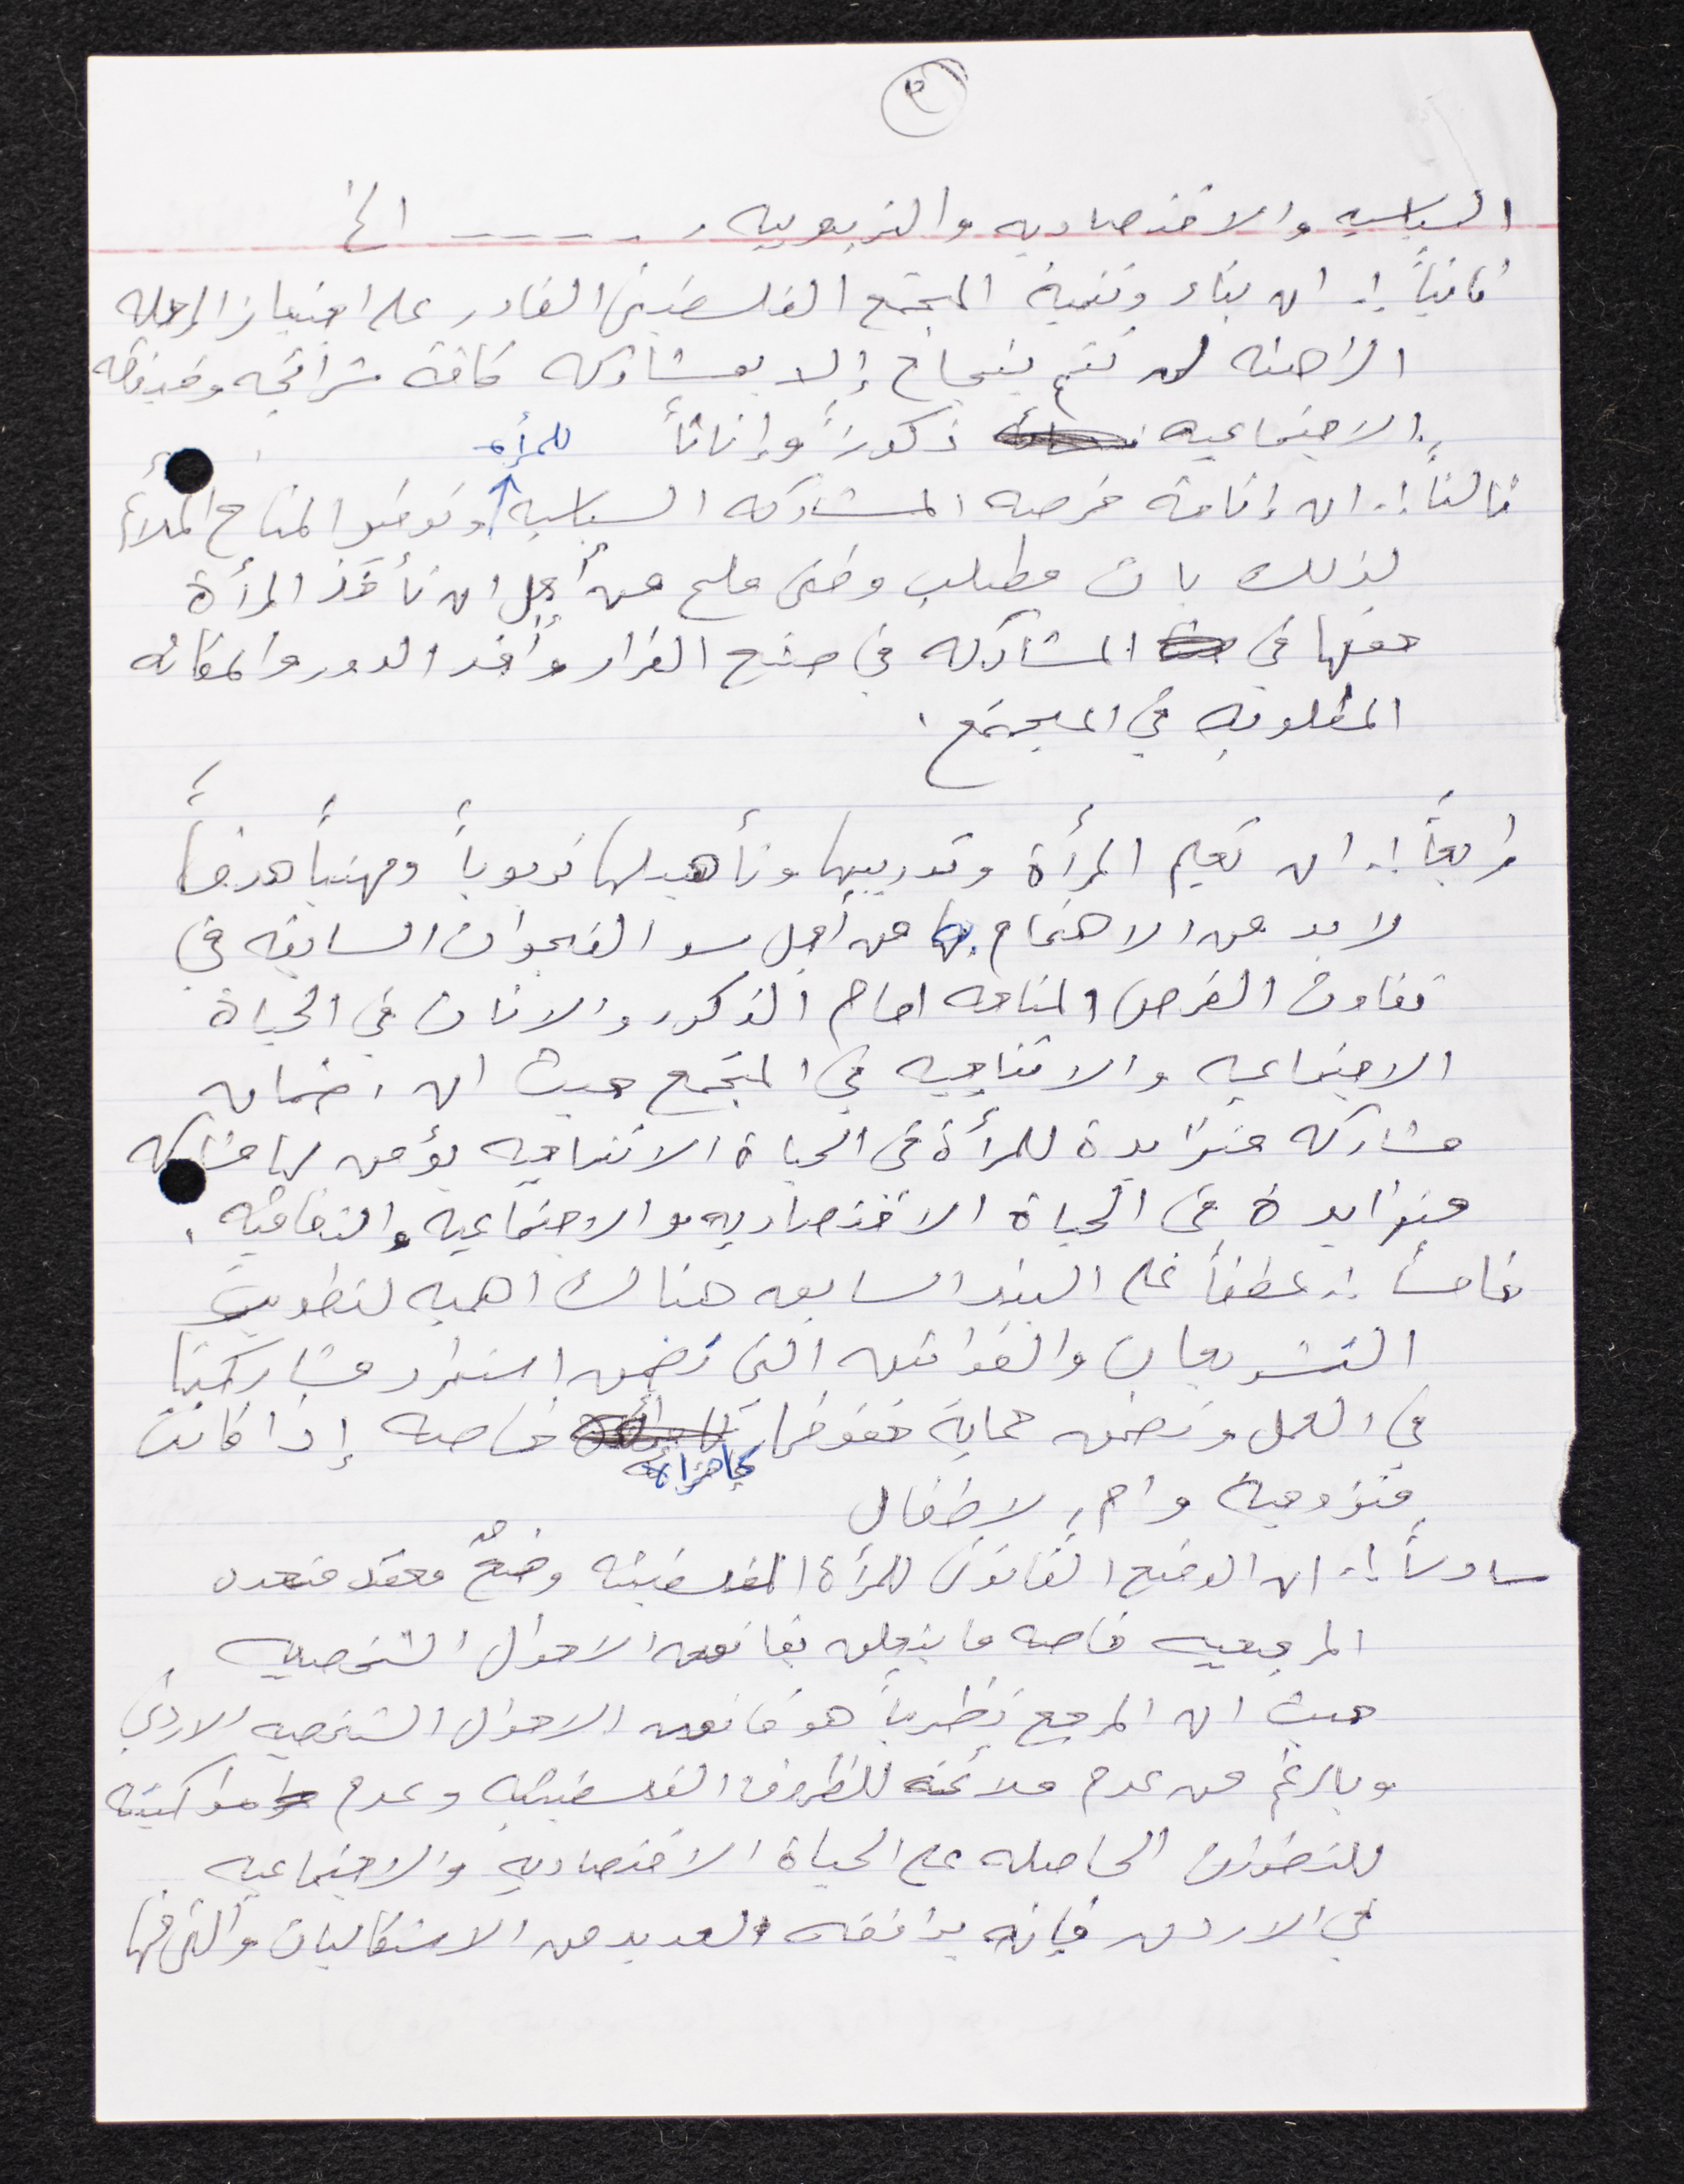 ٣
السياسيه والاقتصاديه والتربويه ، ـ ـ ـ ـ ـ الخ
ثانياً :ـ ان بناء وتنمية المجتمع الفلسطيني القادر على اجتياز المرحله
الراهنه لن تتم بنجاح إلا بمشاركه كافة شرائحه وطبقاته
الاجتماعيه ذكوراً وإناثاً
ثالثاً :ـ ان إتاحة فرصه المشاركه السياسيه للمرأه وتوفير المناخ الملائم
لذلك بات مطلب وطني ملح من أجل ان تأخذ المرأة
حقها في المشاركه في صنع القرار وأخذ الدور والمكانه
المطلوبه في المجتمع .
رابعاً :ـ ان تعليم المرأة وتدريبها وتأهيلها تربوياً ومهنياً هدفاً
لا بد من الاهتمام به من أجل سد الفجوات السابقه في
تفاوت الفرص المتاحه امام الذكور والاناث في الحياة
الاجتماعيه والانتاجيه في المجتمع حيث ان ضمان
مشاركه متزايدة للمرأة في الحياة الانتاجيه يؤمن لها مشاركه
متزايدة في الحياة الاقتصاديه والاجتماعيه والثقافيه .
خامساً :ـ عطفاً على البند السابق هناك اهميه لتطوير
التشريعات والقوانين التي تضمن استمرار مشاركتها
في العمل وتضمن حماية حقوقها كامرأة خاصه إذا كانت
متزوجة وام لاطفال
سادساً :ـ ان الوضع القانوني للمرأة الفلسطينيه وضعٌ معقد متعدد
المرجعيه خاصه ما يتعلق بقانون الاحوال الشخصيه
حيث ان المرجع نظرياً هو قانون الاحوال الشخصيه الاردني
وبالرغم من عدم ملائمته للظروف الفلسطينيه وعدم مواكبته
للتطورات الحاصله على الحياة الاقتصاديه والاجتماعيه
في الاردن فإنه يرافقه العديد من الاشكاليات والتي منها